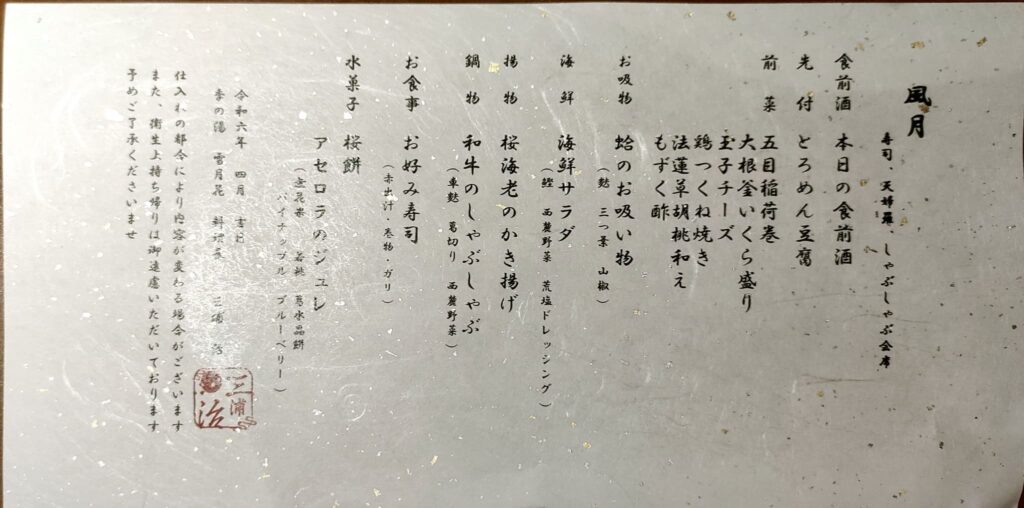 風月
寿司、天婦羅、しゃぶしゃぶ会席
食前酒 本日の食前酒
先付 とろめん豆腐
前菜 五目稲荷巻
大根釜いくら盛り
玉子チーズ
鶏つくね焼き
法蓮草胡桃和え
もずく酢
お吸物 蛤のお吸い物
（麩 三つ葉 山椒）
海鮮 海鮮サラダ
（鰹 西麓野菜 荒塩ドレッシング）
揚物 桜海老のかき揚げ
鍋物 和牛のしゃぶしゃぶ
（車麩 葛切り 西麓野菜）
お食事 お好み寿司
（赤出汁・巻物・ガリ）
水菓子 桜餅
アセロラのジュレ
（無花果 若桃 葛水晶餅
パイナップル ブルーベリー）
令和六年 四月 吉日
季の湯 雪月花 料理長 三浦 治
三浦治
仕入れの都合により内容が変わる場合がございます
また、衛生上持ち帰りは御遠慮いただいております
予めご了承くださいませ